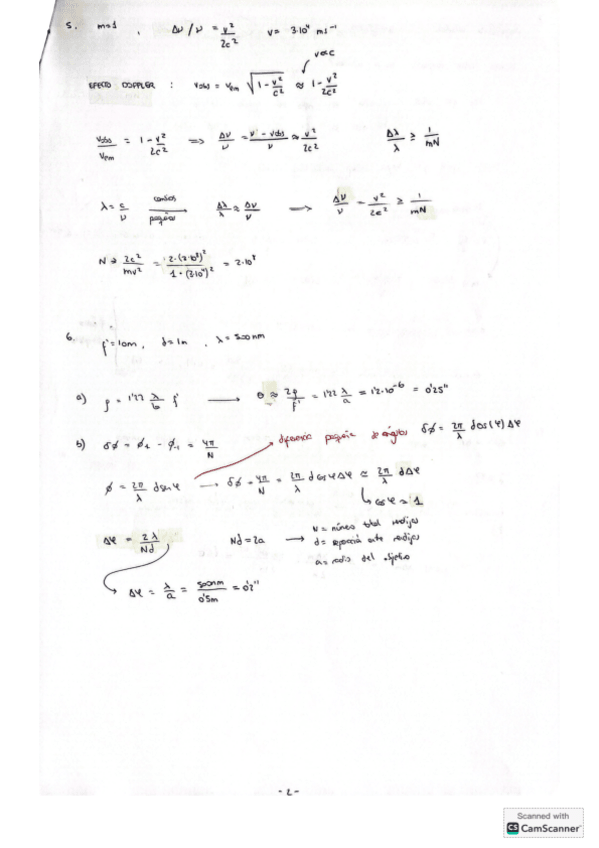 5. m=1 , Δν/ν = v²/2c² v= 3·10⁴ ms⁻¹
v<<c
EFECTO DOPPLER : νobs = νem √(1 - v²/c²) ≈ 1 - v²/2c²
νobs/νem = 1 - v²/2c² ⟹ Δν/ν = (ν - νobs)/ν ≈ v²/2c² Δλ/λ ≥ 1/mN
λ = c/ν cambios pequeños → Δλ/λ ≈ Δν/ν → Δν/ν = v²/2c² ≥ 1/mN
= 2·10⁸
6. f'=10m, d=1m , λ = 500nm
a) ρ = 1'22 λ/b f' → θ ≈ 2ρ/f' = 1'22 λ/a = 1'2·10⁻⁶ = 0'25"
b) δφ = φ₂ - φ₁ = 4π/N diferencia pequeña de ángulos δφ = 2π/λ d cos(φ) Δφ
φ = 2π/λ d sin φ → δφ = 4π/N = 2π/λ d cos φ Δφ ≃ 2π/λ d Δφ
cos φ ≈ 1
Δφ = 2λ/Nd Nd = 2a → N = número total rendijas
d = separación entre rendijas
a = radio del objetivo
Δφ = λ/a = 500nm/0'5m = 0'2"
- 2 -
Scanned with
CS CamScanner